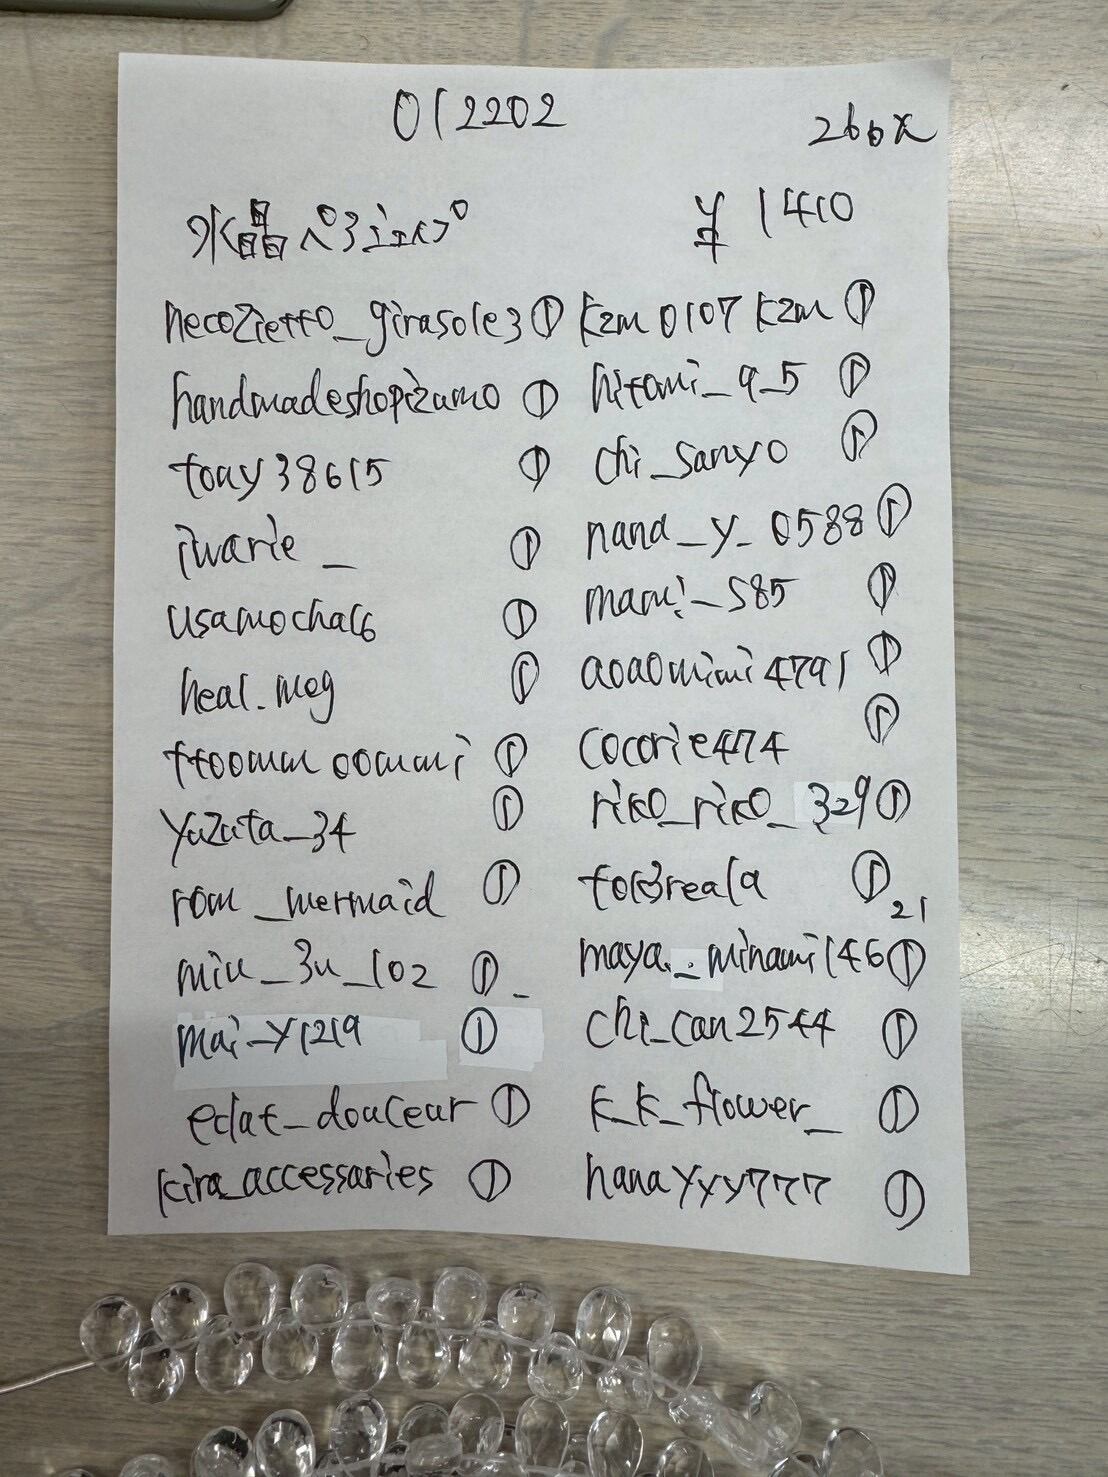 012202
26本
水晶ペアシェイプ
¥1410
necozietto_girasole3 ①
handmadeshopizumo ①
tony38615 ①
iwarie_ ①
usamocha16 ①
heal.meg ①
ttoomm oommi ①
yuzuta_34 ①
rom_mermaid ①
miu_3u_102 ①
mai_y1219 ①
eclat_douceur ①
kira_accessaries ①
kzm0107kzm ①
hitomi_9_5 ①
chi_sanyo ①
nana_y_0588 ①
mami_585 ①
aoaomimi4791 ①
cocorie474 ①
riko_riko_329 ①
①21
maya._minami146 ①
chi_can2544 ①
k_k_flower_ ①
hanayyy777 ①